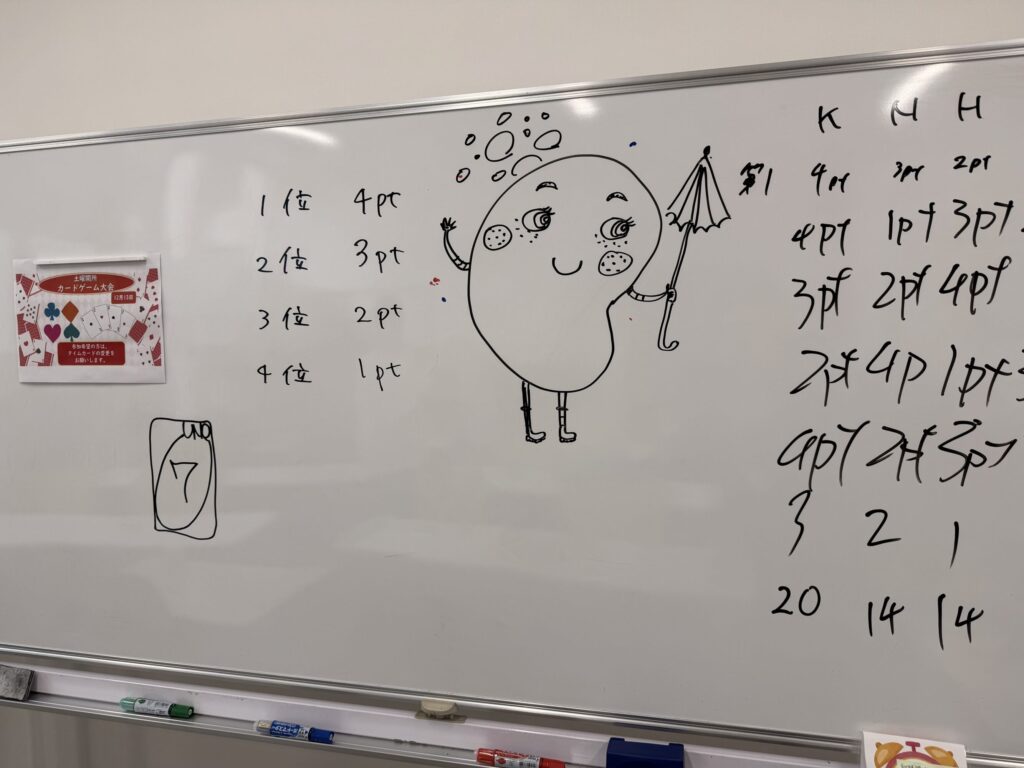 土曜開所
カードゲーム大会
12月13日
参加希望の方は、
タイムカードの変更を
お願いします。
UNO
7
1位 4pt
2位 3pt
3位 2pt
4位 1pt
K M H
第1 4pt 3pt 2pt
4pt 1pt 3pt
3pt 2pt 4pt
2pt 4p 1pt
4pt 2pt 3pt
3 2 1
20 14 14